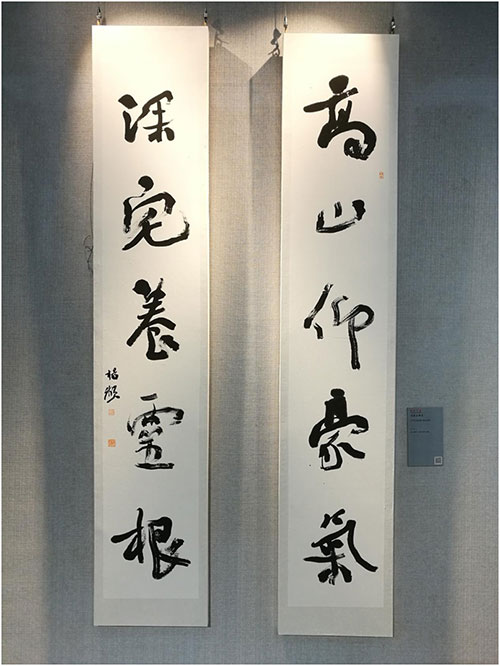 高山仰豪氣
深宅養靈根